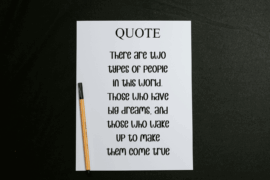 QUOTE
There are two
types of people
in this world.
Those who have
big dreams, and
those who wake
up to make
them come true